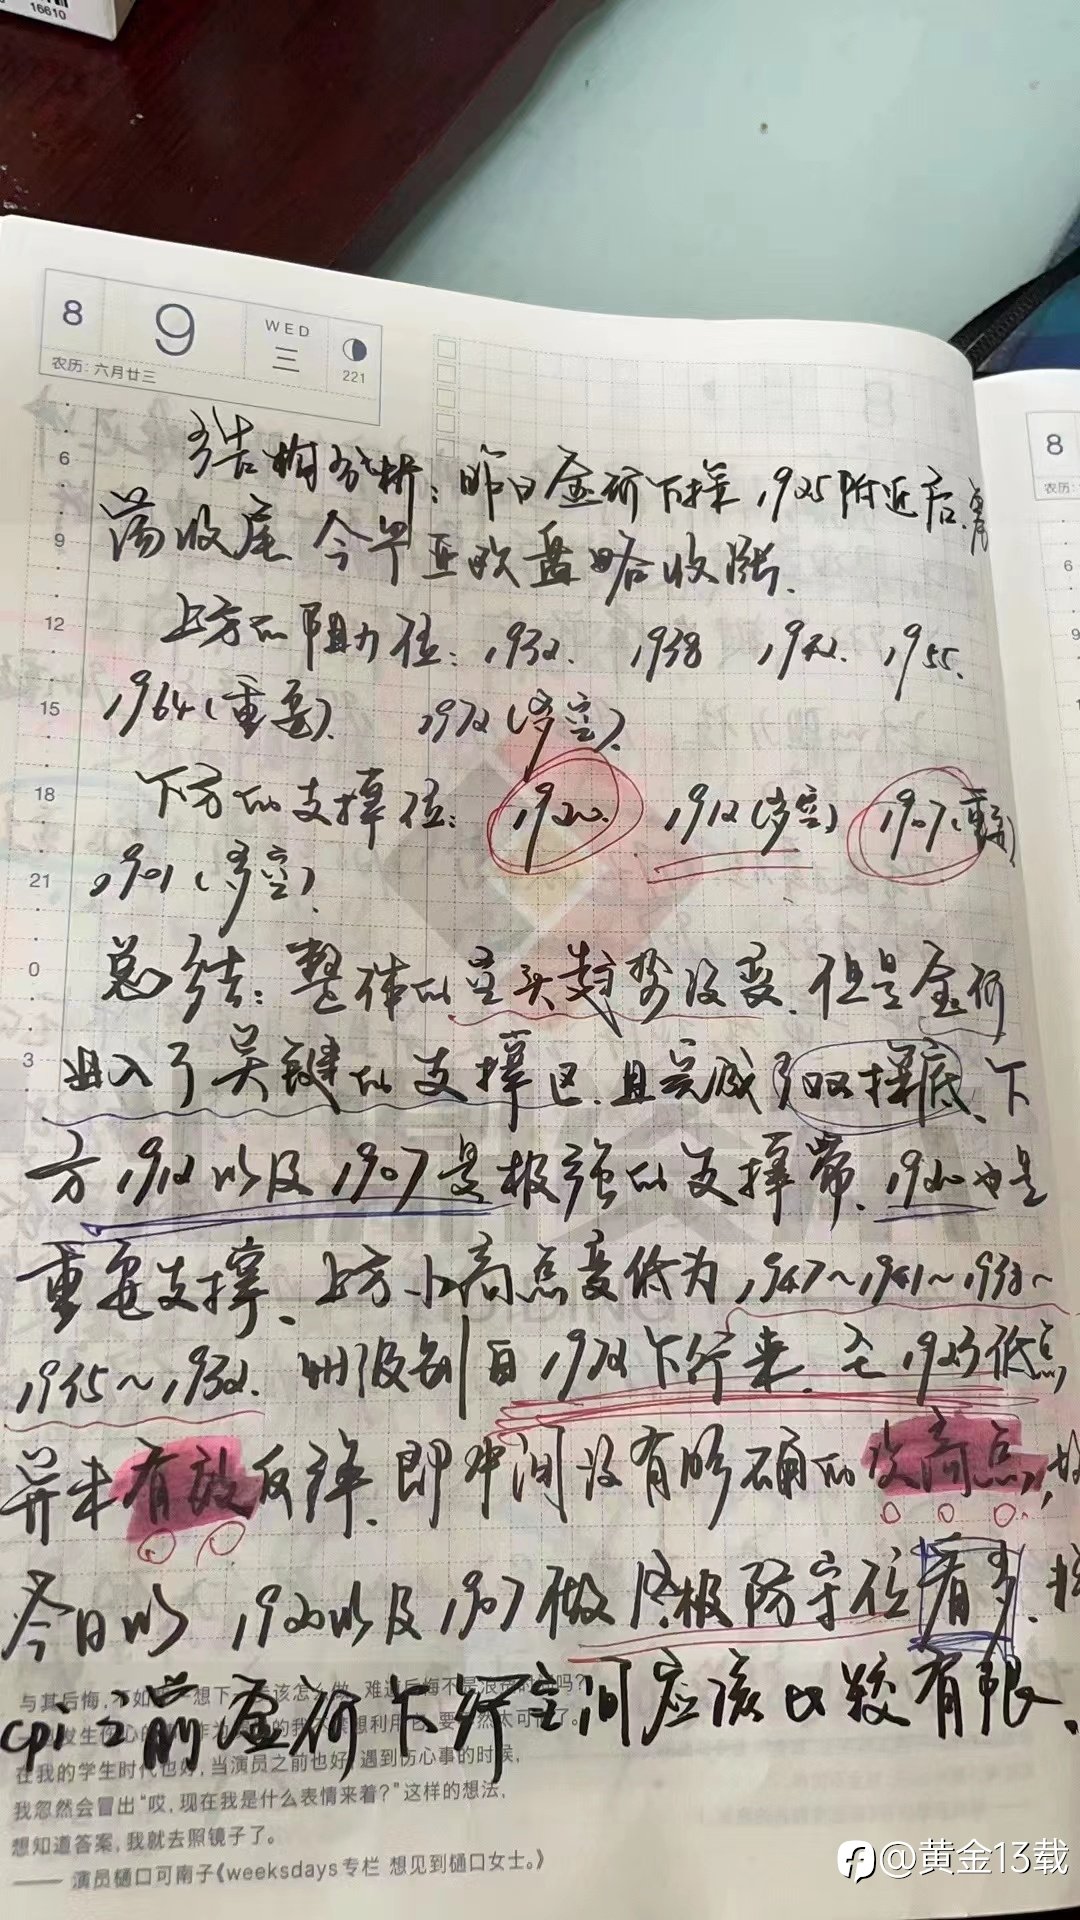 16610
8
9
WED
三
221
农历：六月廿三
8
农历：
6
9
12
15
18
21
0
3
6
结构分析：昨日金价下探1925附近后，震
荡收尾 今早亚欧盘略收涨.
上方的阻力位：1932. 1938 1942. 1955.
1964(重要). 1972(多空).
下方的支撑位：1920. 1912(多空) 1907(重要)
1901(多空).
总结：整体的空头趋势没变. 但是金价
进入了关键的支撑区. 且完成了双探底、下
方1912以及1907是极强的支撑带. 1920也是
重要支撑、上方小高点变低为1947～1941～1938～
1935～1932. 级别自1972下行来. 至1923低点
并未有效反弹. 即中间没有明确的次高点,
今日以1920以及1907做终极防守位看多.
cpi之前金价下行空间应该比较有限.
在我的学生时代也好，当演员之前也好，遇到伤心事的时候，
我忽然会冒出“哎，现在我是什么表情来着？”这样的想法，
想知道答案，我就去照镜子了。
—— 演员樋口可南子《weeksdays专栏 想见到樋口女士。》
@黄金13载